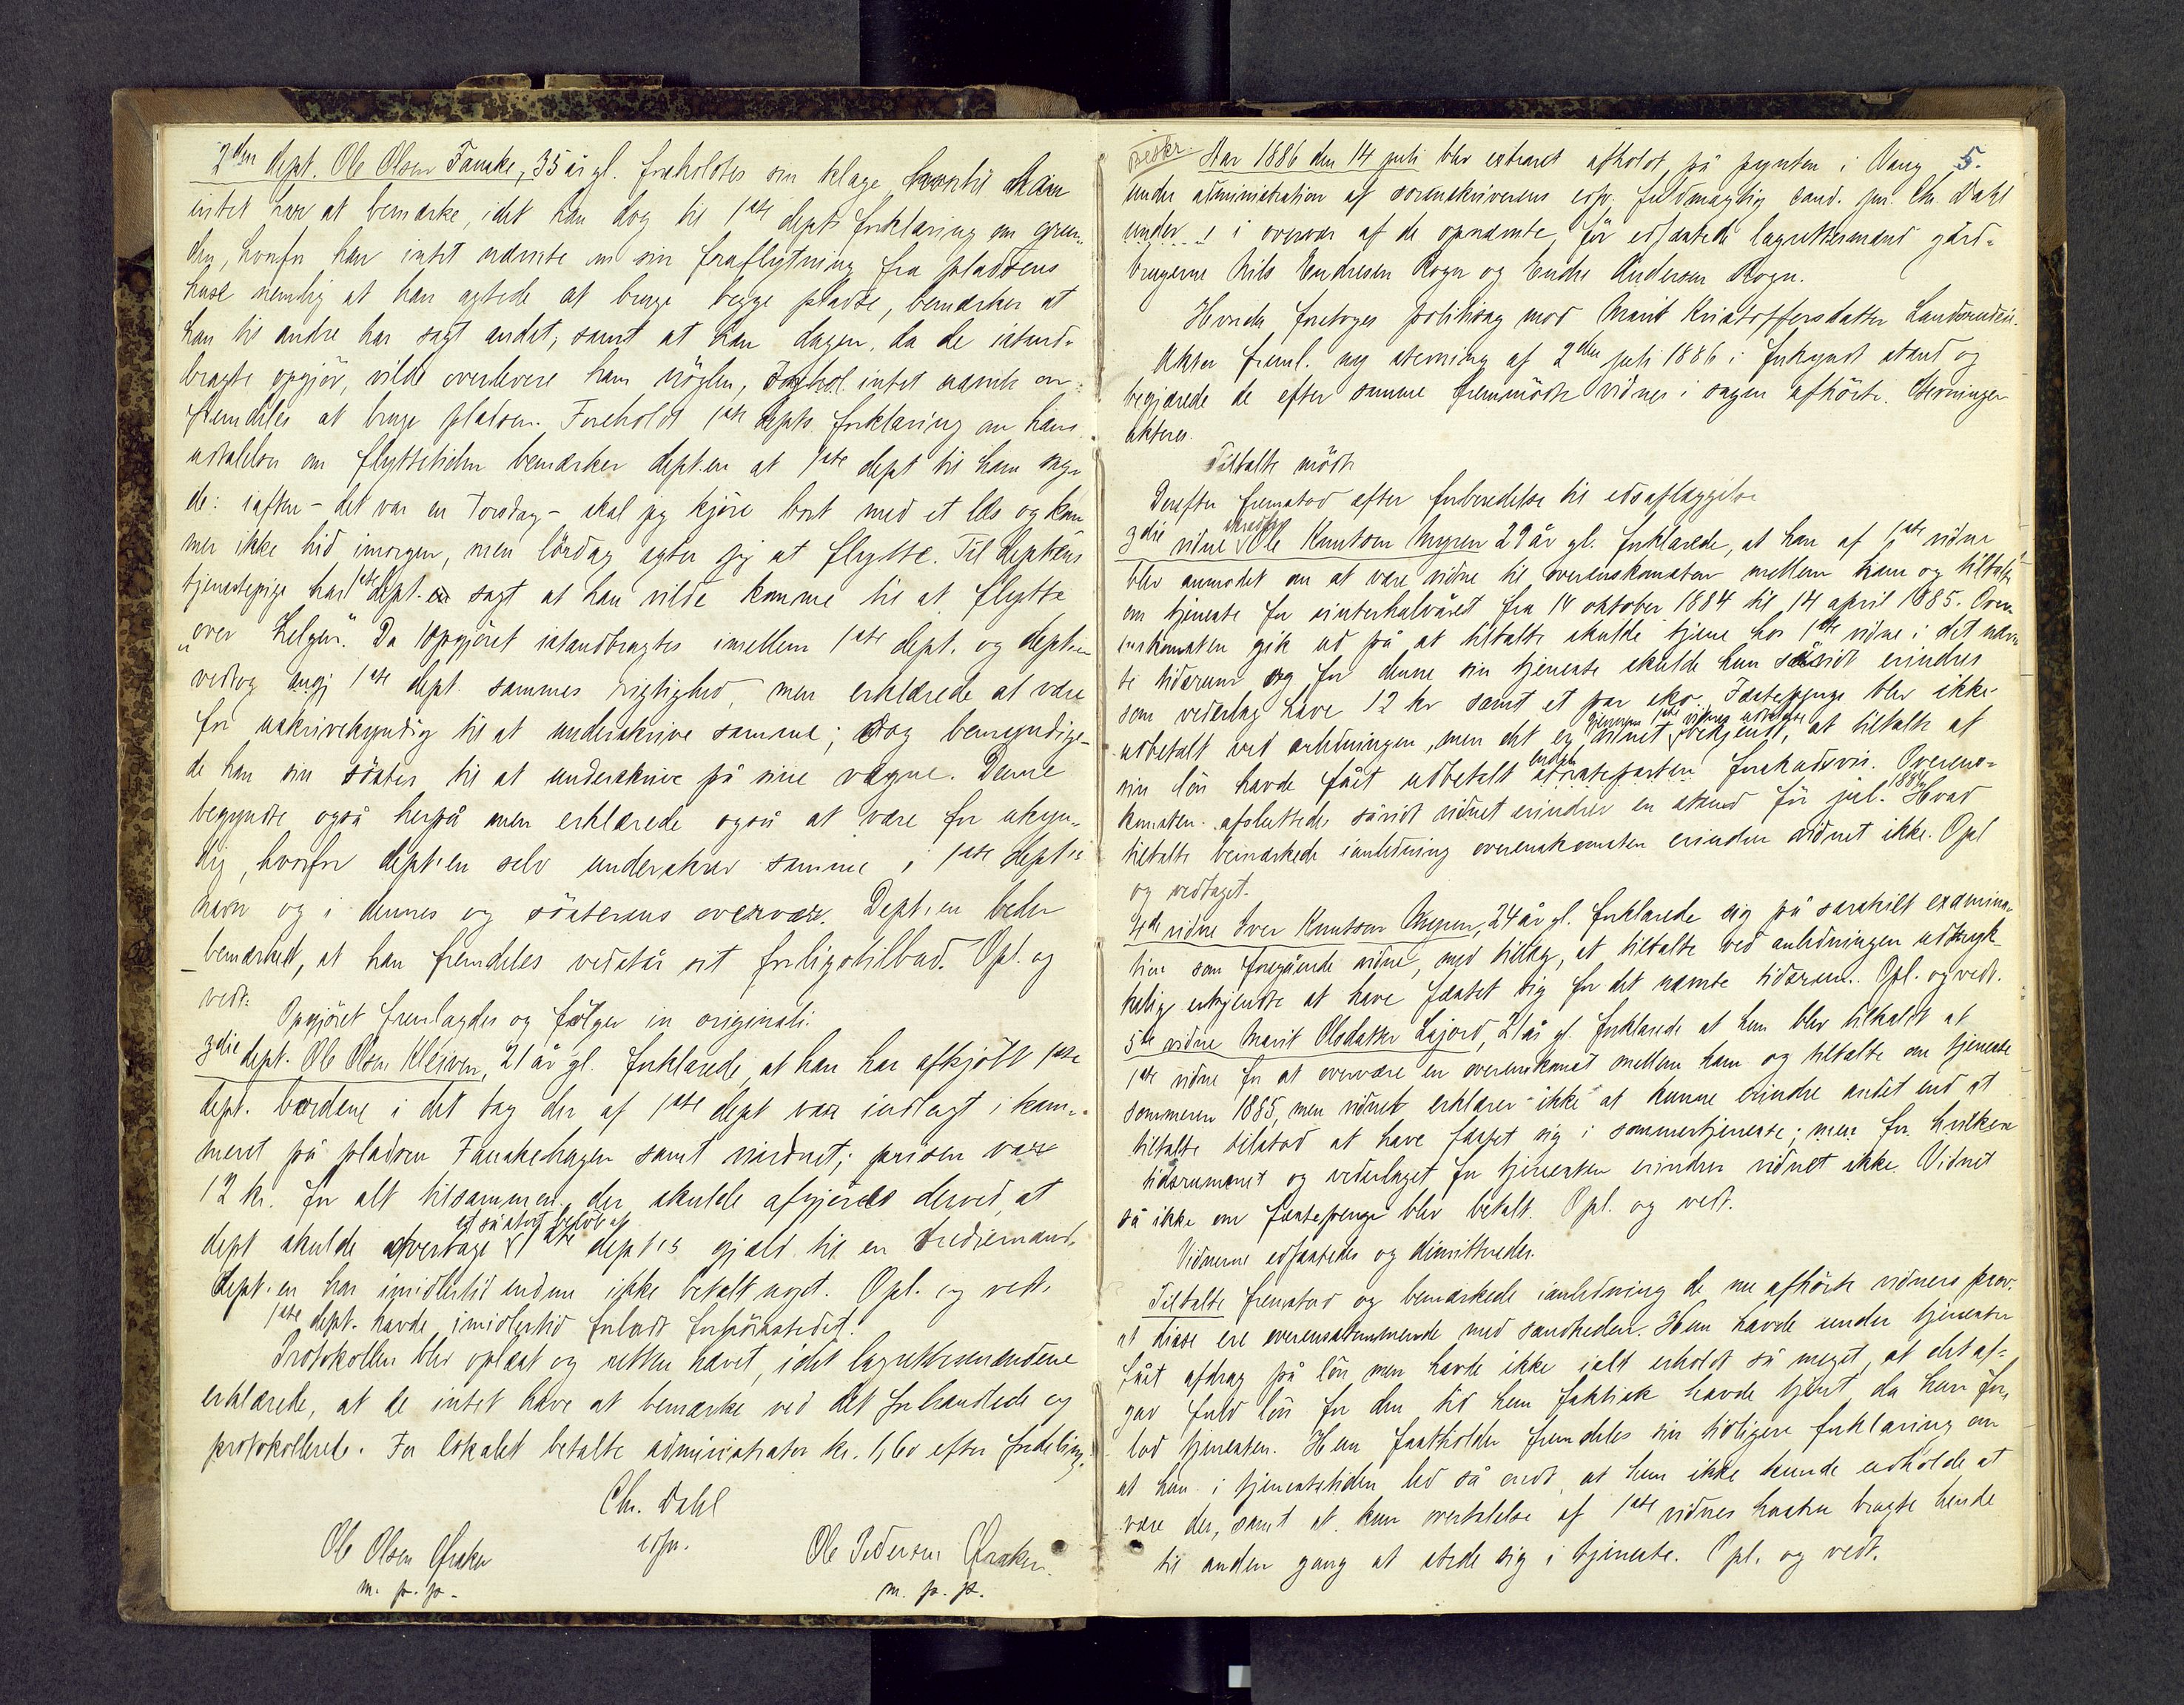 2den dept. Ole Olsen Fauske, 35 år gl. foreholdtes sin klage, hvortil han
intet har at bemærke, idet han dog til 1ste depts forklaring om grun-
den, hvorfor han intet nævnte om sin fraflytning fra pladsens
huse nemlig at han agtede at bruge begge pladse, bemærker at
han til andre har sagt andet, samt at han dagen, da de istand-
bragte opgjör, vilde overlevere ham nöglen, intet nævnte om
fremdeles at bruge pladsen. Foreholdt 1ste depts forklaring om hans
udtalelser om flyttetiden bemærker dept.en at 1ste dept til ham sag-
de: iaften - det var en Torsdag - skal jeg kjöre bort med et læs og kom-
mer ikke hid imorgen, men lördag agter jeg at flytte. Til deptens
tjenestepige har 1ste dept. sagt at han vilde komme til at flytte
"over helgen". Da opgjöret istandbragtes imellem 1ste dept. og depten
vedtog 1ste dept. sammes rigtighed, men erklærede at være
for uskrivekyndig til at underskrive samme; dog bemyndige-
de han sin söster til at underskrive på sine vegne. Denne
begyndte også herpå men erklærede også at være for ukyn-
dig, hvorfor dept.en selv underskrev samme i 1ste dept.s
navn og i dennes og sösterens overvær. Dept.en beder
bemærket, at han fremdeles vedstår sit forligstilbud. Opl. og
vedt.
Opgjöret fremlagdes og fölger in originali.
3die dept. Ole Olsen Kleiven, 21 år gl. forklarede, at han har afkjöbt 1ste
dept. bordene i det tag der af 1ste dept var indlagt i kam-
meret på pladsen Fauskehagen samt vinduet; prisen var
12 kr. for alt tilsammen, der skulde afgjöres derved, at
dept skulde overtage et så stort belöb af 1ste dept.s gjæld til en trediemand.
Dept.en har imidlertid endnu ikke betalt noget. Opl. og vedt.
1ste dept. havde imidlertid forladt forhörsstedet.
Protokollen blev oplæst og retten hævet, idet lagrettesmændene
erklærede, at de intet have at bemærke ved det forhandlede og
protokollerede. For lokalet betalte administrator kr. 1,60 efter fordeling.
Chr. Dahl
edsv.
Ole Olsen Öraker
m. p. p.
Ole Pedersen Öraker.
m. p. p.
beskr
5.
Aar 1886 den 14 juli blev extraret afholdt på pynten i Vang
under administration af sorenskriverens edsv. fuldmægtig cand. jur. Chr. Dahl
under i overvær af de opnævnte, för edfæstede lagrettesmænd gård-
brugerne Nils Endresen Rogn og Endre Andersen Rogn.
Hvorda foretoges politisag mod Marit Kristoffersdatter
Aktor freml. ny stevning af 2den juli 1886 i forkyndt stand og
begjærede de efter samme fremmödte vidner i sagen afhörte. Stevningen
akteres.
Tiltalte mödte
Derefter fremstod efter forberedelse til edsaflæggelse
3die vidne Ole Knutsen Myren 29 år gl. forklarede, at han af 1ste vidne
blev anmodet om at være vidne til overenskomsten mellem ham og tiltalte
om tjeneste for vinterhalvåret fra 14 oktober 1884 til 14 april 1885. Over-
enskomsten gik ud på at tiltalte skulde tjene hos 1ste vidne i det nævn-
te tidsrum og for denne sin tjeneste skulde hun såvidt erindres
som vederlag have 12 kr samt et par sko. Fæstepenge blev ikke
udbetalt ved anledningen, men det er vidnet gjennem 1ste vidnes udtalelse bekjendt, at tiltalte af
sin lön havde fået udbetalt endel forskudsvis. Overens-
komsten afsluttedes såvidt vidnet erindrer en stund för jul 1884. Hvad
tiltalte bemærkede i anledning overenskomsten erindrer vidnet ikke. Opl
og vedtaget.
4de vidne Iver Knutsen Myren, 24 år gl. forklarede sig på særskilt examina-
tion som foregående vidne, med tillæg, at tiltalte ved anledningen udtryk-
kelig erkjendte at have fæstet sig for det nævnte tidsrum. Opl. og vedt.
5te vidne Marit Olsdatter Lajord, 21 år gl. forklarede at hun blev tilkaldt af
1ste vidne for at overvære en overenskomst mellem ham og tiltalte om tjeneste
sommeren 1885, men vidnet erklærer ikke at kunne erindre andet end at
tiltalte tilstod at have fæstet sig i sommertjeneste; men for hvilken
tidsrummet og vederlaget for tjenesten erindrer vidnet ikke. Vidnet
så ikke om fæstepenge blev betalt. Opl. og vedt.
Vidnerne edfæstedes og dimitteredes.
Tiltalte fremstod og bemærkede i anledning de nu afhörte vidners prov,
at disse ere overensstemmende med sandheden. Hun havde under tjenesten
fået afdrag på lön men havde ikke ialt erholdt så meget, at det af-
gav fuld lön for den tid hun faktisk havde tjent, da hun for-
lod tjenesten. Hun fastholder fremdeles sin tidligere forklaring om
at hun i tjenestetiden led så ondt, at hun ikke kunde udholde at
være der, samt at kun overtalelse af 1ste vidnes hustru bragte hende
til anden gang at stede sig i tjeneste. Opl. og vedt.